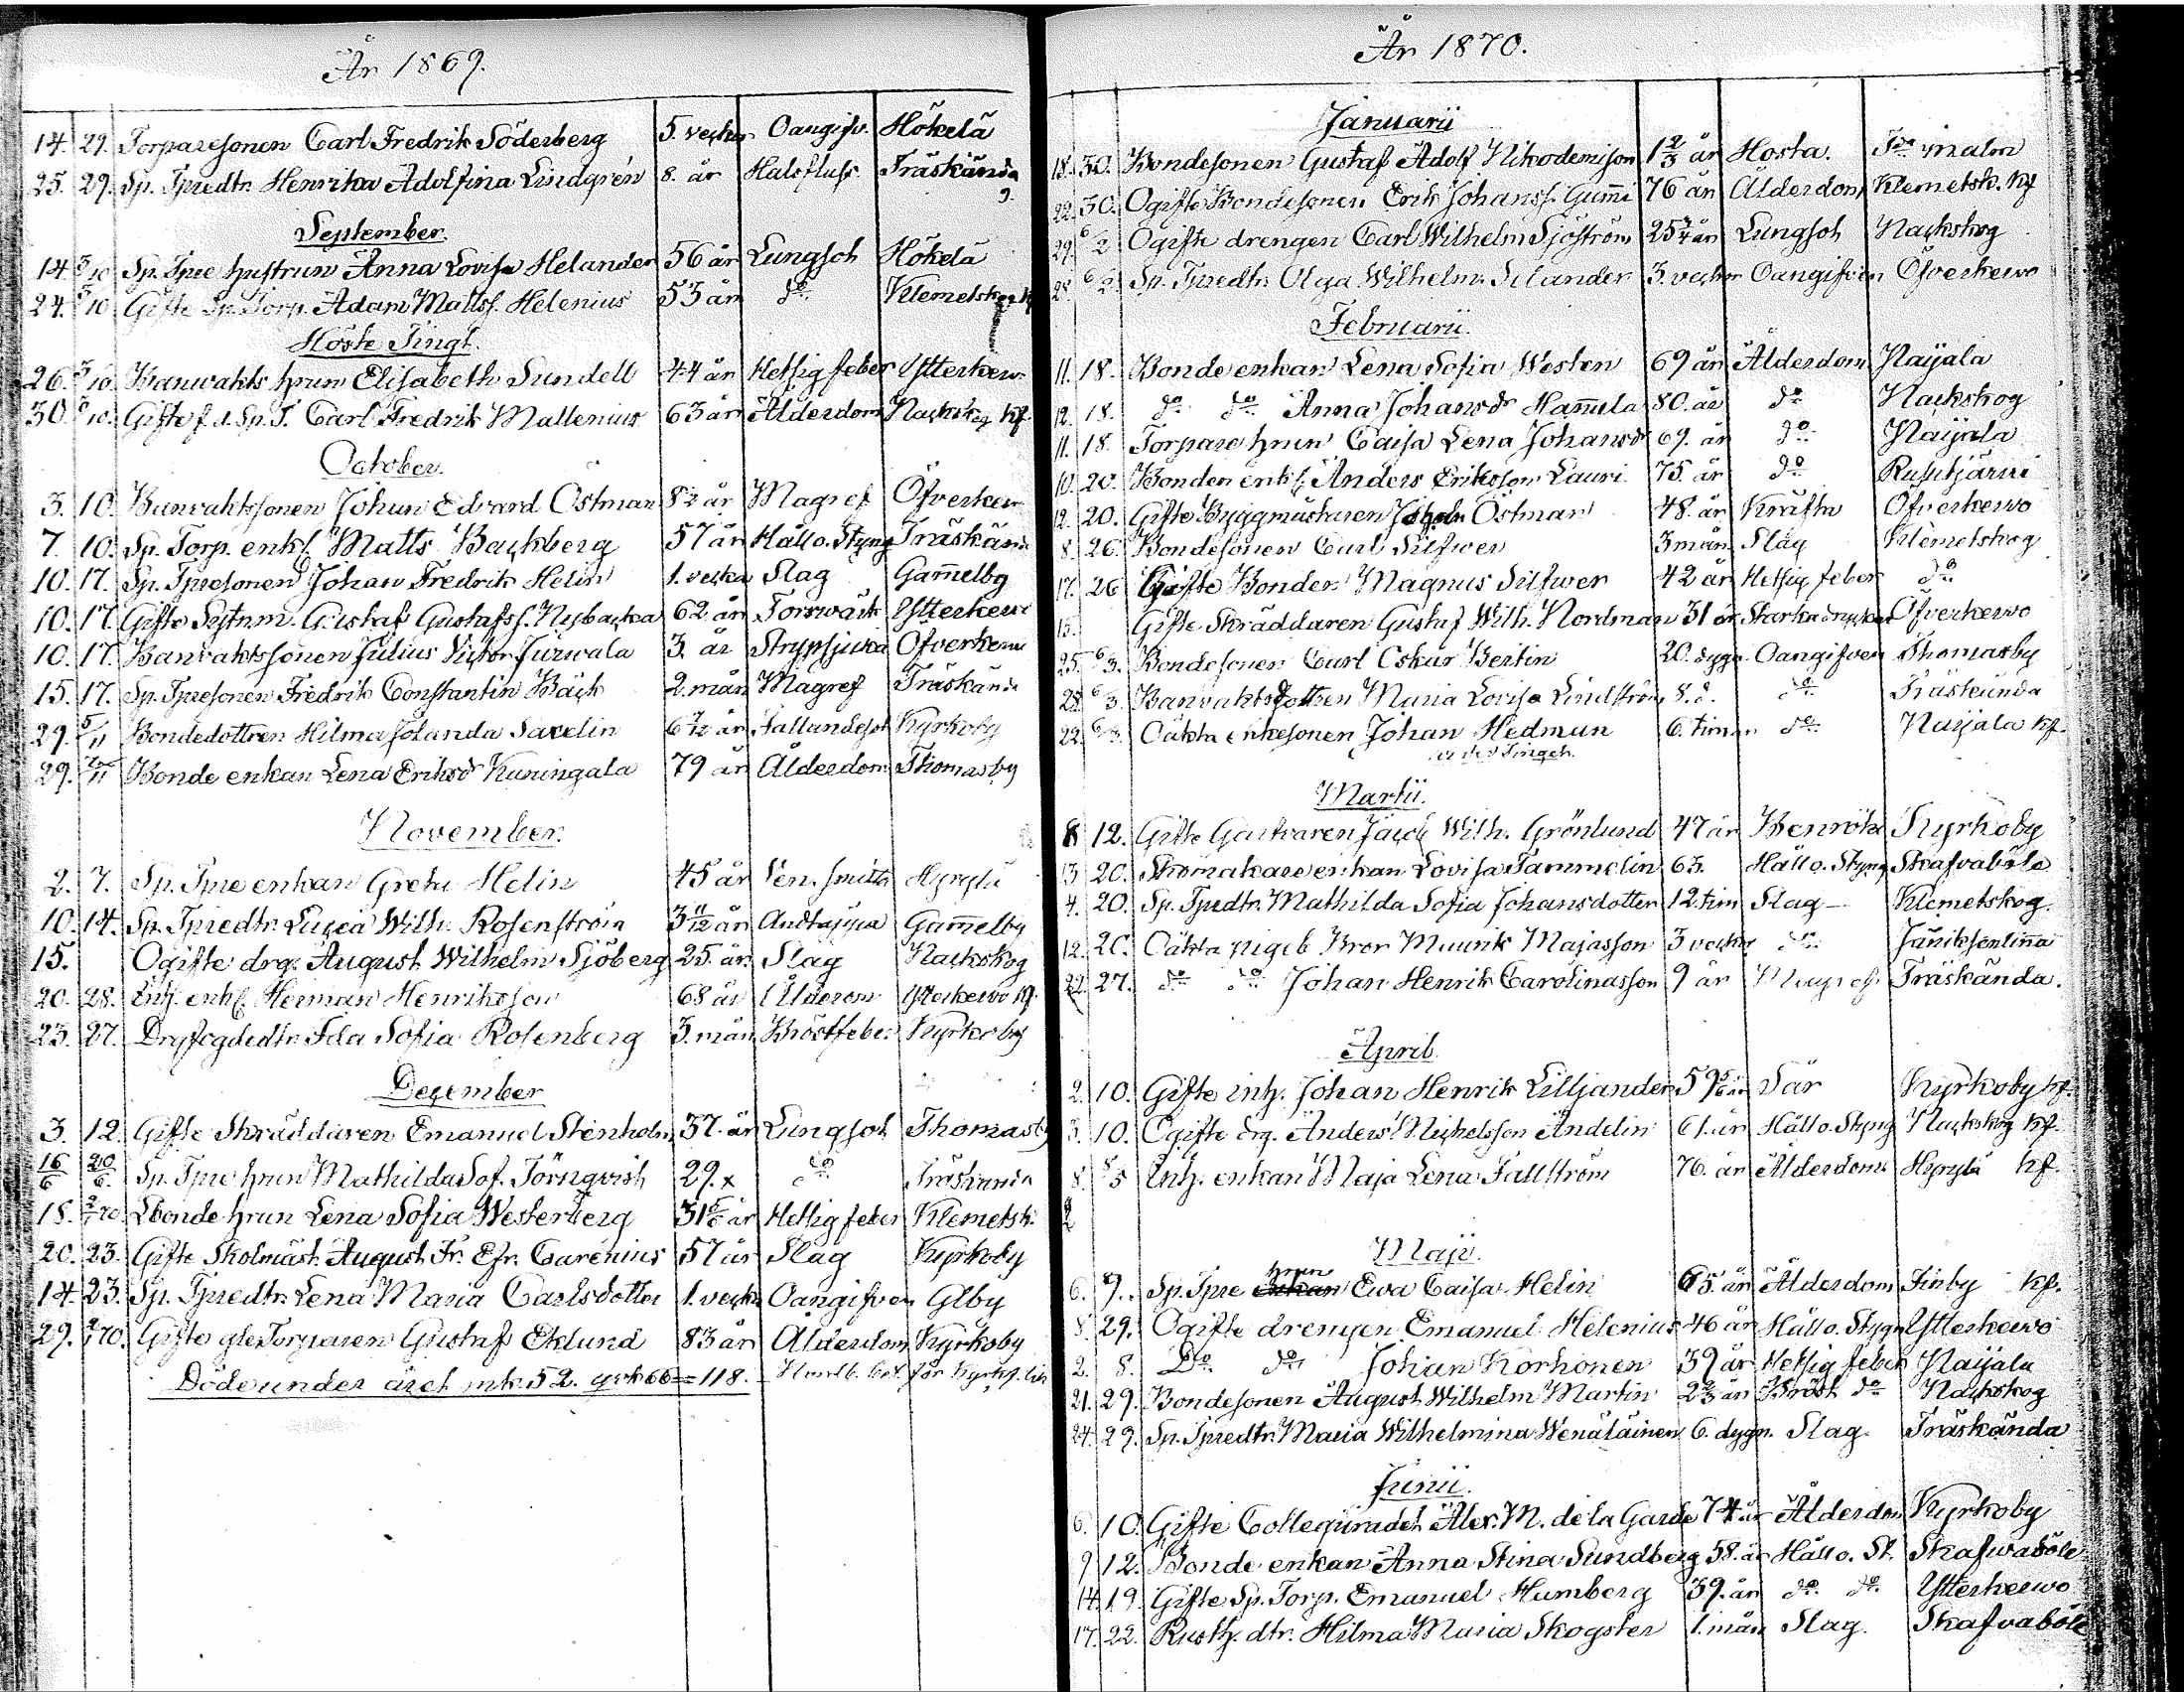 År 1869.
14. 29. Torparesonen Carl Fredrik Söderberg 5. veckor Oangifv. Hökelä
25. 29. Sp. Tpredtr. Henrika Adolfina Lindgrén 8. år Halsfluss Träskända
September.
14. 3/10 Sp. Tpre hustrun Anna Lovisa Helander 56 år Lungsot Hökelä
24. 3/10 Gifte Sp. Torp. Adam Mattss. Helenius 53 år do Klemetskog
Höste Tingt.
26. 3/10. Banwakts hrun Elisabeth Sundell 44 år Hetsig feber Ytterkerv
30. /10. Gifte f. d. Sp. T. Carl Fredrik Mallenius 63 år Ålderdom Nackskog kf
October.
3. 10. Banvaktssonen Johan Edvard Östman 8½ år Magref Öfverkerv
7. 10. Sp. Torp. enkl. Matts Backberg 57 år Håll o. Styng Träskända
10. 17. Sp. Tpresonen Johan Fredrik Helin 1. vecka Slag Gam̄elby
10. 17. Gifte Sytnm. Gustaf Gustafss. Nybacka 62 år Torrwärk Ytterkerv
10. 17. Banvaktssonen Julius Victor Jürwala 3. år Strypsjuka Öfverkerv
15. 17. Sp. Tpresonen Fredrik Constantin Bäck 2. mån Magref Träskända
29. 5/11 Bondedottren Hilma Jolanda Savelin 6 1/12 år Fallandesot Kyrkoby
29. /11 Bonde enkan Lena Eriksdr Kuningala 79 år Ålderdom Thomasby
November.
2. 7. Sp. Tpre enkan Greta Helin 45 år Ven. smitta Hyrylä
10. 14. Sp. Tpredtr. Lucia Wilh. Rosenström 3 11/12 år Andtäppa Gam̄elby
15. Ogifte drg. August Wilhelm Sjöberg 25. år. Slag Nackskog
20. 28. Inh. enkl. Herman Henriksson 68 år Ålderom Ytterkervo kf.
23. 27. Dryfogdedtr. Ida Sofia Rosenberg 3. mån Bröstfeber Kyrkoby
December
3. 12. Gifte Skräddaren Emanuel Stenholm 37. år Lungsot Thomasby
16/6 20/6. Sp. Tpre hrun Mathilda Sof. Törnqvist 29. x do Träskända
18. 2/1 70 Lbonde hrun Lena Sofia Westerberg 31 5/6 år Hetsig feber Klemetsk.
20. 23. Gifte Skolmäst. August Fr. Efr. Carenius 57 år Slag Kyrkoby
14. 23. Sp. Tpredtr. Lena Maria Carlsdotter 1. vecka Oangifven Glby
29. 2/1 70. Gifte gle Torparen Gustaf Eklund 83 år Ålderdom Kyrkoby
Döde under året mk. 52. qvk 66 = 118.
År 1870.
Januarii
18. 30. Bondesonen Gustaf Adolf Nikodemisson 1 2/3 år Hosta.
22. 30. Ogifte Bondesonen Erik Johanss. Gum̄i 76 år Ålderdom Klemetsk. kf
29. 6/2 Ogifte drengen Carl Wilhelm Sjöström 25 ¾ år Lungsot Nackskog
28. 6/2. Sp. Tpredtr. Olga Wilhelm. Silander 3. veckor Oangifven Öfverkervo
Februarii.
11. 18. Bonde enkan Lena Sofia Westen 69 år Ålderdom Naijala
12. 18. do do Anna Johansdr Ham̄ula 80. år do Nackskog
11. 18. Torpare hrun Caisa Lena Johansdr 69. år do Naijala
10. 20. Bonden enkl. Anders Eriksson Lauri. 75. år do Rusutjärvi
12. 20. Gifte Byggmästaren Johan Östman 48. år Kräfta Öfverkervo
8. 26. Bondesonen Carl Silfwer 3 mån Slag Klemetskog
17. 26 Gifte Bonden Magnus Silfwer 42 år Hetsig feber do
15. Gifte Skräddaren Gustaf Wilh. Nordman 31 år Starka drycker Öfverkervo
25. 6/3. Bondesonen Carl Oskar Bertin 20. dygn. Oangifven Thomasby
28. 6/3. Banvaktsdottren Maria Lovisa Lindström 8. d. do Träskända
22. 6/3. Oäkta enkesonen Johan Hedman 6. timar do Naijala kf.
Martii.
8 12. Gifte Garfvaren Jacob Wilh. Grönlund 47 år Benröta Kyrkoby
13 20. Skomakare enkan Lovisa Tammelin 63. Håll o. Styng Skafvaböle
4. 20. Sp. Tpredtr. Mathilda Sofia Johansdotter 12. tim Slag Klemetskog.
12. 20. Oäkta pigeb. Bror Maurik Majasson 3 veckor do Jäniksenlin̄a
22. 27. do do Johan Henrik Carolinasson 9 år Magref Träskända.
April.
2. 10. Gifte inh. Johan Henrik Lilljander 59 5/6 år Sår Kyrkoby kf.
3. 10. Ogifte drg. Anders Michelsson Andelin 61. år Håll o. Styng Nackskog kf.
8. 8/5 Inh. enkan Maja Lena Fallström 76. år Ålderdom. Hyrylä kf.
Maji.
6. 9. Sp. Tpre enkan hrun Ewa Caisa Helin 65. år Ålderdom Finby kf.
8. 29. Ogifte drengen Emanuel Helenius 46 år Håll o. Stygn Ytterkervo
2. 8. Do do Johan Korhonen 39 år Hetsig feber Naijala
21. 29. Bondesonen August Wilhelm Martin 2 2/3 år Bröst do Nackskog
24. 29. Sp. Tpredtr. Maria Wilhelmina Wenäläinen 6. dygn. Slag. Träskända
Junii.
6. 10. Gifte Collegiiradet Alex. M. de la Garde 74 år Ålderdom Kyrkoby
9 12. Bonde enkan Anna Stina Sundberg 58. år Håll o. St. Skafwaböle
14. 19. Gifte Sp. Torp. Emanuel Humberg 39. år do do Ytterkervo
17. 22. Rusth. dtr. Hilma Maria Skogster 1. mån Slag. Skafvaböle